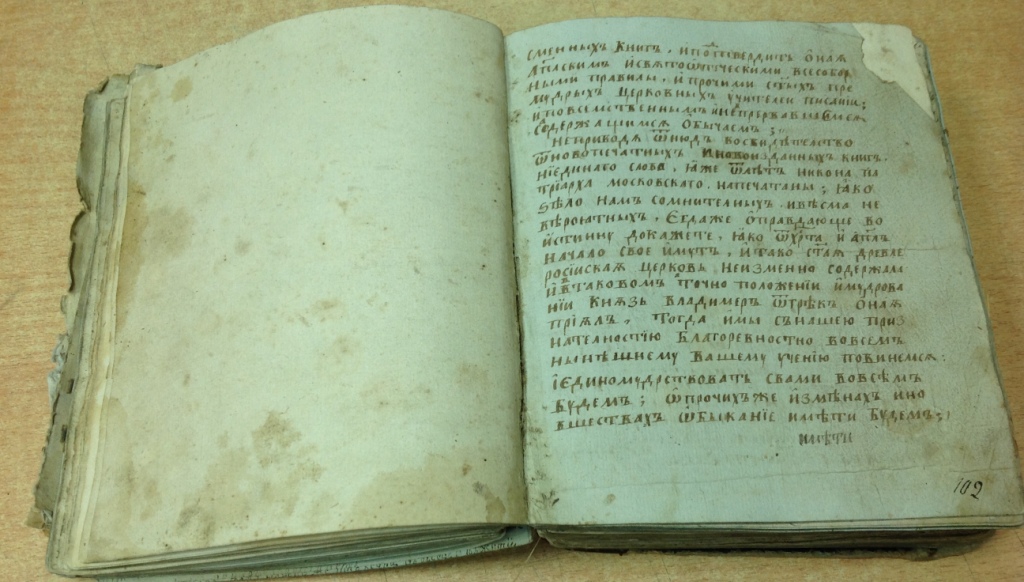 сменныхъ книгъ, и подтвердитъ оная
апⷭ҇лскимъ и святоотеческими всесобор
ными правилы, и прочими ст҃ыхъ пре
мудрыхъ церковныхъ учителей писанїи;
содержащимся обычаемъ;
Неприводя ѿнюдъ восвидѣтелство
ѿновопечатныхъ иновоизданныхъ книгъ
нїединаго слова, ꙗже ѿлѣтъ никона па
трїарха московскаго, напечатаны; ꙗко
ѕѣло намъ сомнителныхъ, ивѣсма не
вѣроютныхъ, Егдаже оправдающе во
истинну докажете, ꙗко ѿхр҃та и апⷭ҇лъ
начало свое имутъ, итако ст҃ая древле
россїиская церковь неизменно содержала
и втаковомъ точно положенїи имудрова
нїи Князь Владимеръ ѿгрѣкъ оная
прїялъ, Тогда имы сънашею приз
нателностїю благоревностно вовсемъ
нынѣшнему вашему ученїю повинемся:
їединомудрствовать свами вовсѣмъ
будемъ; опрочихъже измѣнахъ ино
вшествахъ обыканїе имѣти будемъ;
имѣти
102